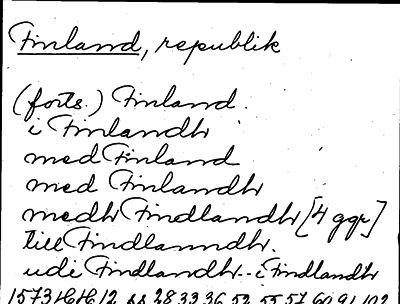 Finland, republik
(forts.) Finland.
i Finlandh
med Finland
med Finlandh
medh Findlandh [4 ggr]
till Findlanndh.
udi Findlandh - i Findlandh
1573 HH 12 ss 28 33 36 52 55 57 60 61 102